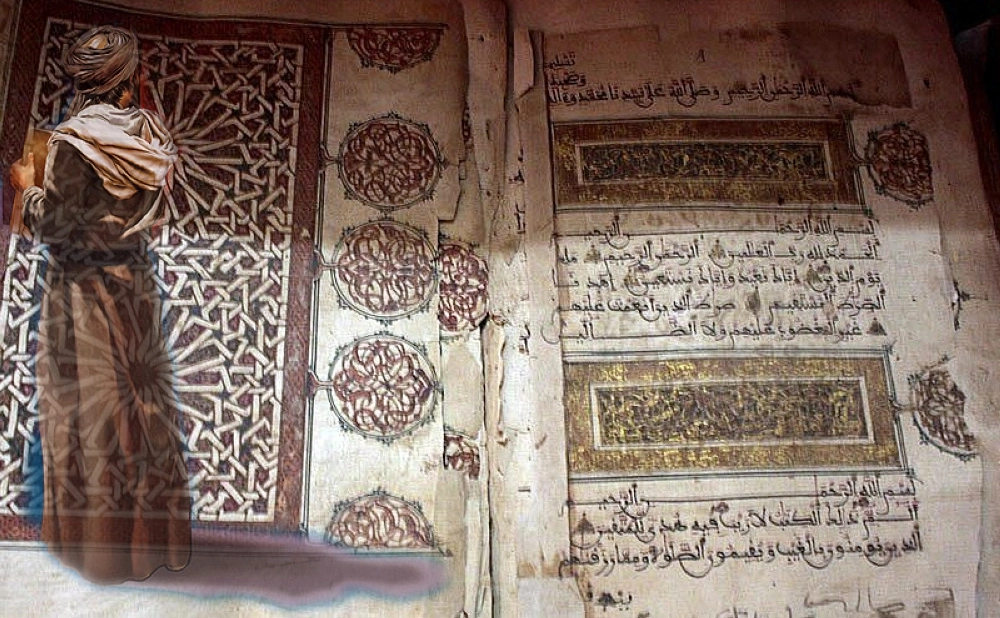 بسم الله الرحمن الرحيم وصلى الله على سيدنا محمد
بسم الله الرحمن الرحيم
الحمد لله رب العلمين الرحمن الرحيم ملك
يوم الدين اياك نعبد واياك نستعين اهدنا
الصرط المستقيم صرط الذين انعمت عليهم
غير المغضوب عليهم ولا الضالين
بسم الله الرحمن الرحيم
الم ذلك الكتب لا ريب فيه هدى للمتقين
الذين يومنون بالغيب ويقيمون الصلوة ومما رزقنهم